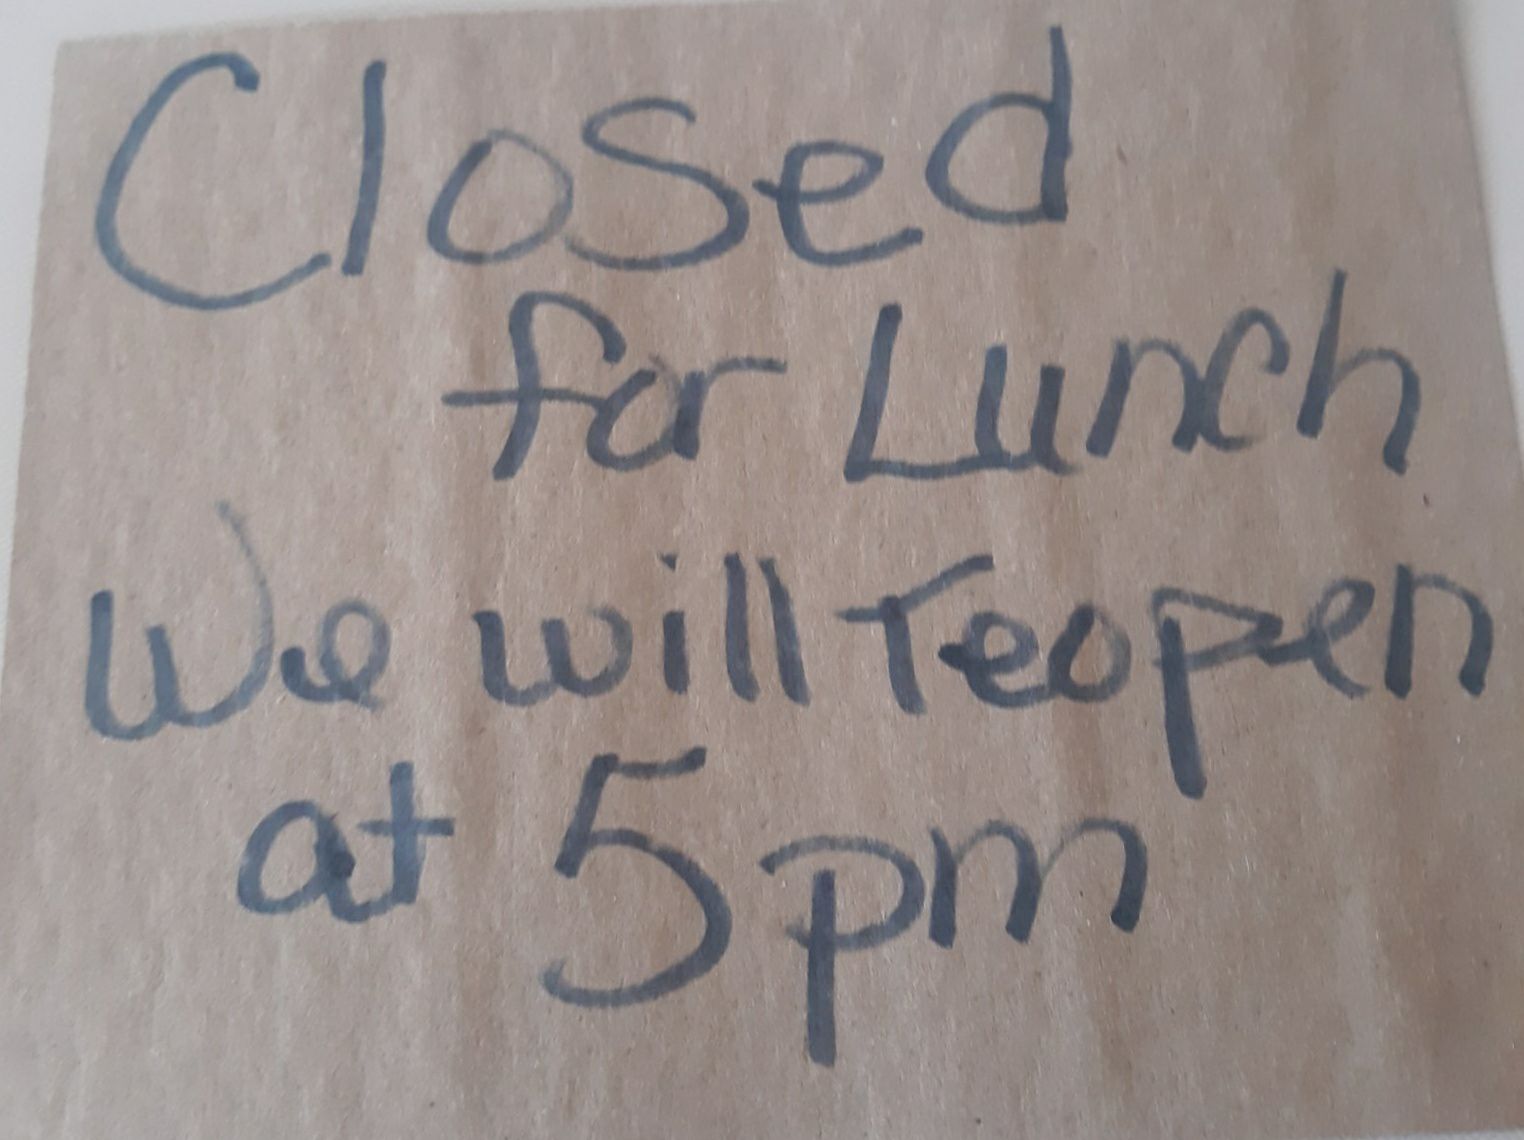 Closed
for Lunch
We will reopen
at 5pm